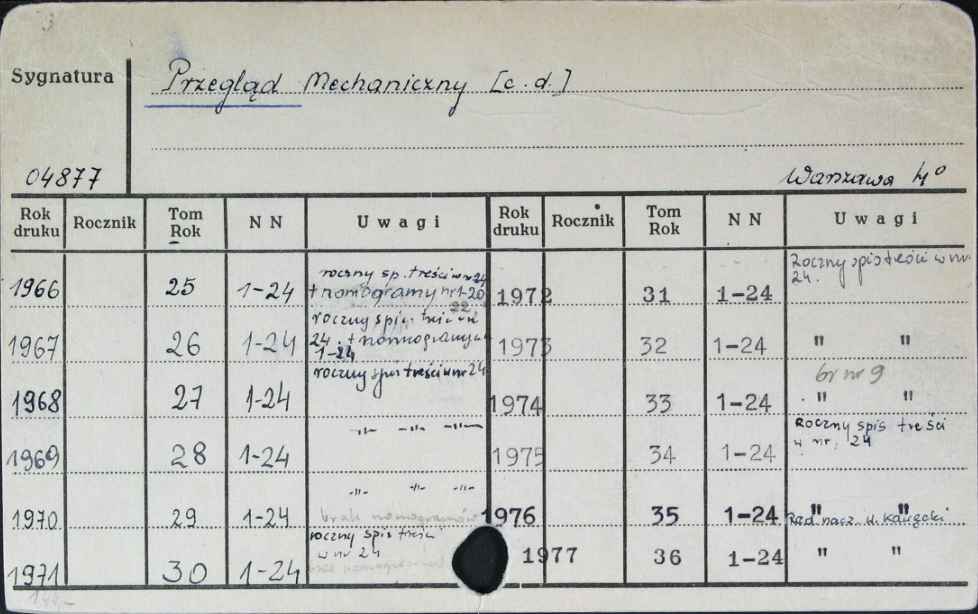 Sygnatura
Przegląd Mechaniczny [c.d.]
04877
Warszawa 4°
Rok druku Rocznik Tom Rok NN Uwagi Rok druku Rocznik Tom Rok NN Uwagi
1966 25 1-24 roczny sp. treści w nr 24
+ nomogramy nr 1-20
22
1967 26 1-24 roczny spis treści w nr
24 + nomogramy
1-24
1968 27 1-24 roczny spis treści w nr 24
1969 28 1-24 -"- -"- -"-
1970 29 1-24 -"- -"- -"-
1971 30 1-24 roczny spis treści
w nr 24
1972 31 1-24 Roczny spis treści w nr
24.
1973 32 1-24 " "
1974 33 1-24 br nr 9
" "
1975 34 1-24 Roczny spis treści
w nr. 24
1976 35 1-24 " "
Red. nacz.
1977 36 1-24 " "